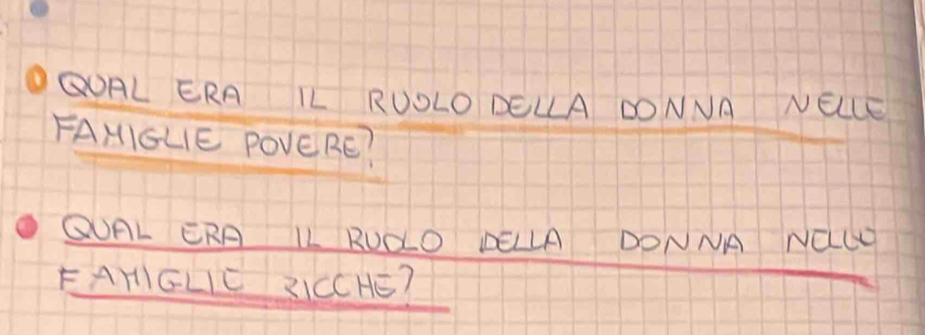 QUAL ERA IL RUOLO DELLA DONNA NELLE
FAMIGLIE POVERE?
QUAL ERA IL RUOLO DELLA DONNA NELLE
FAMIGLIE RICCHE?